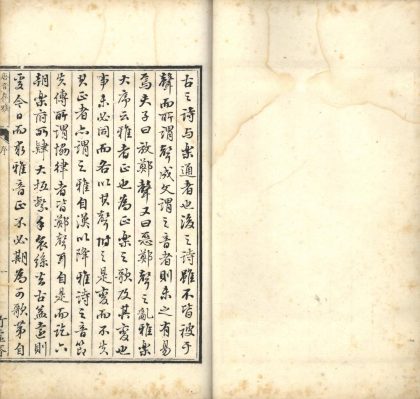 古之詩與樂通者也後之詩雖不皆被于
聲而所謂聲成文謂之音者則未之有易
焉夫子曰放鄭聲又曰惡鄭聲之亂雅樂
大序云雅者正也為正樂之歌及其變也
事未必同而各以其聲附之是變而不失
其正者六謂之雅自漢以降雅詩之音節
失傳所謂協律者皆鄭聲耳自是而訖六
朝樂府所肄大抵繁手哀絲去古益遠則
夏令日而求雅音正不必期為可歌第自
序
一